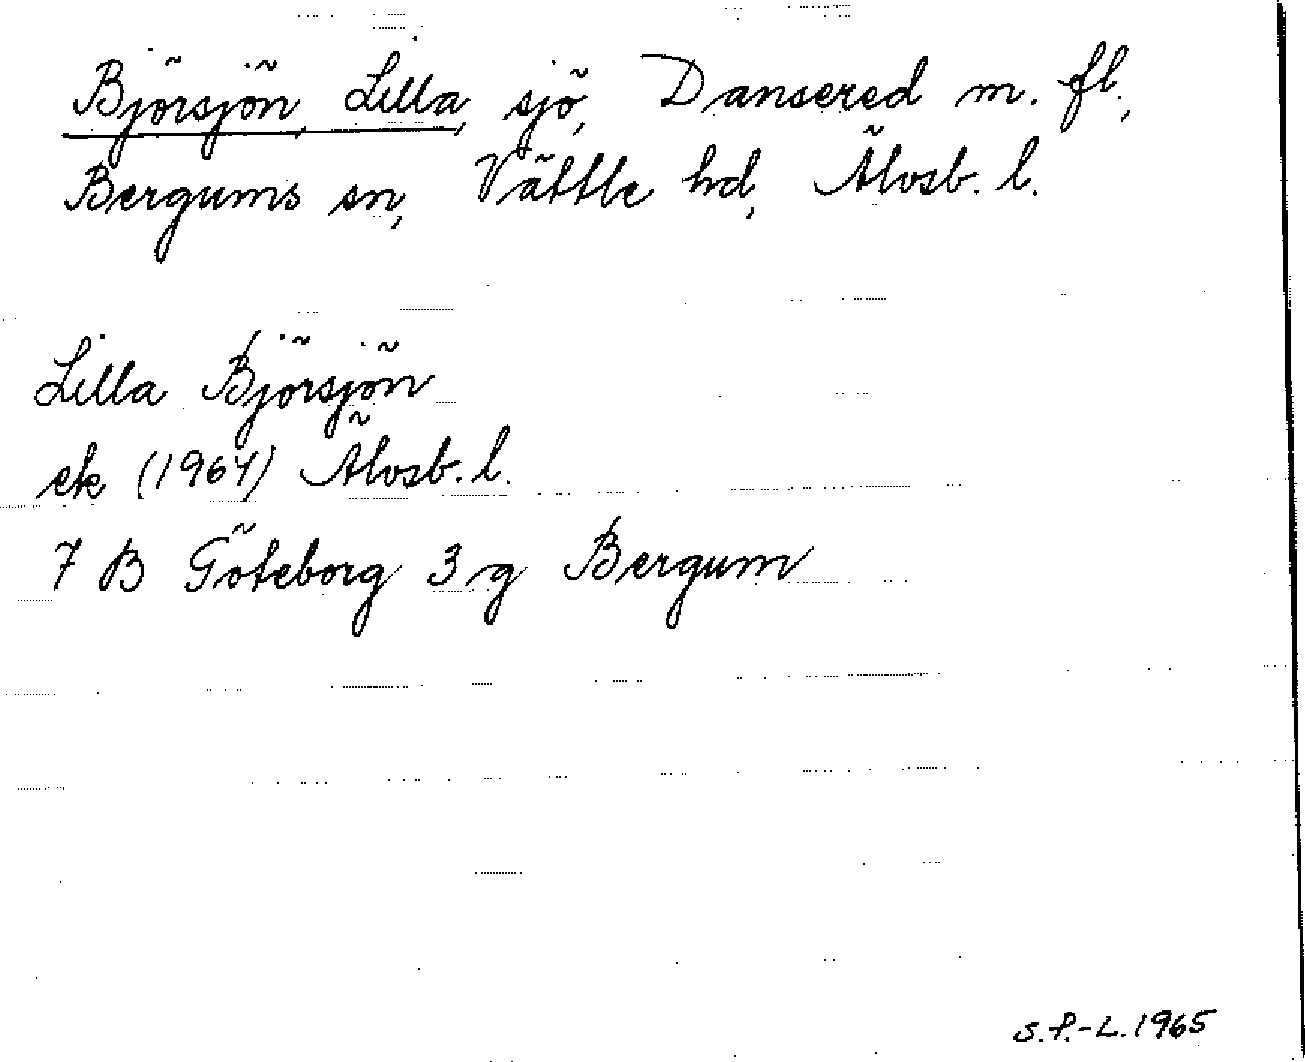 Björsjön, Lilla, sjö, Dansered m. fl.,
Bergums sn, Vättle hd, Älvsb. l.
Lilla Björsjön
ek (1964) Älvsb. l.
7 B Göteborg 3 g Bergum
S.P.-L. 1965